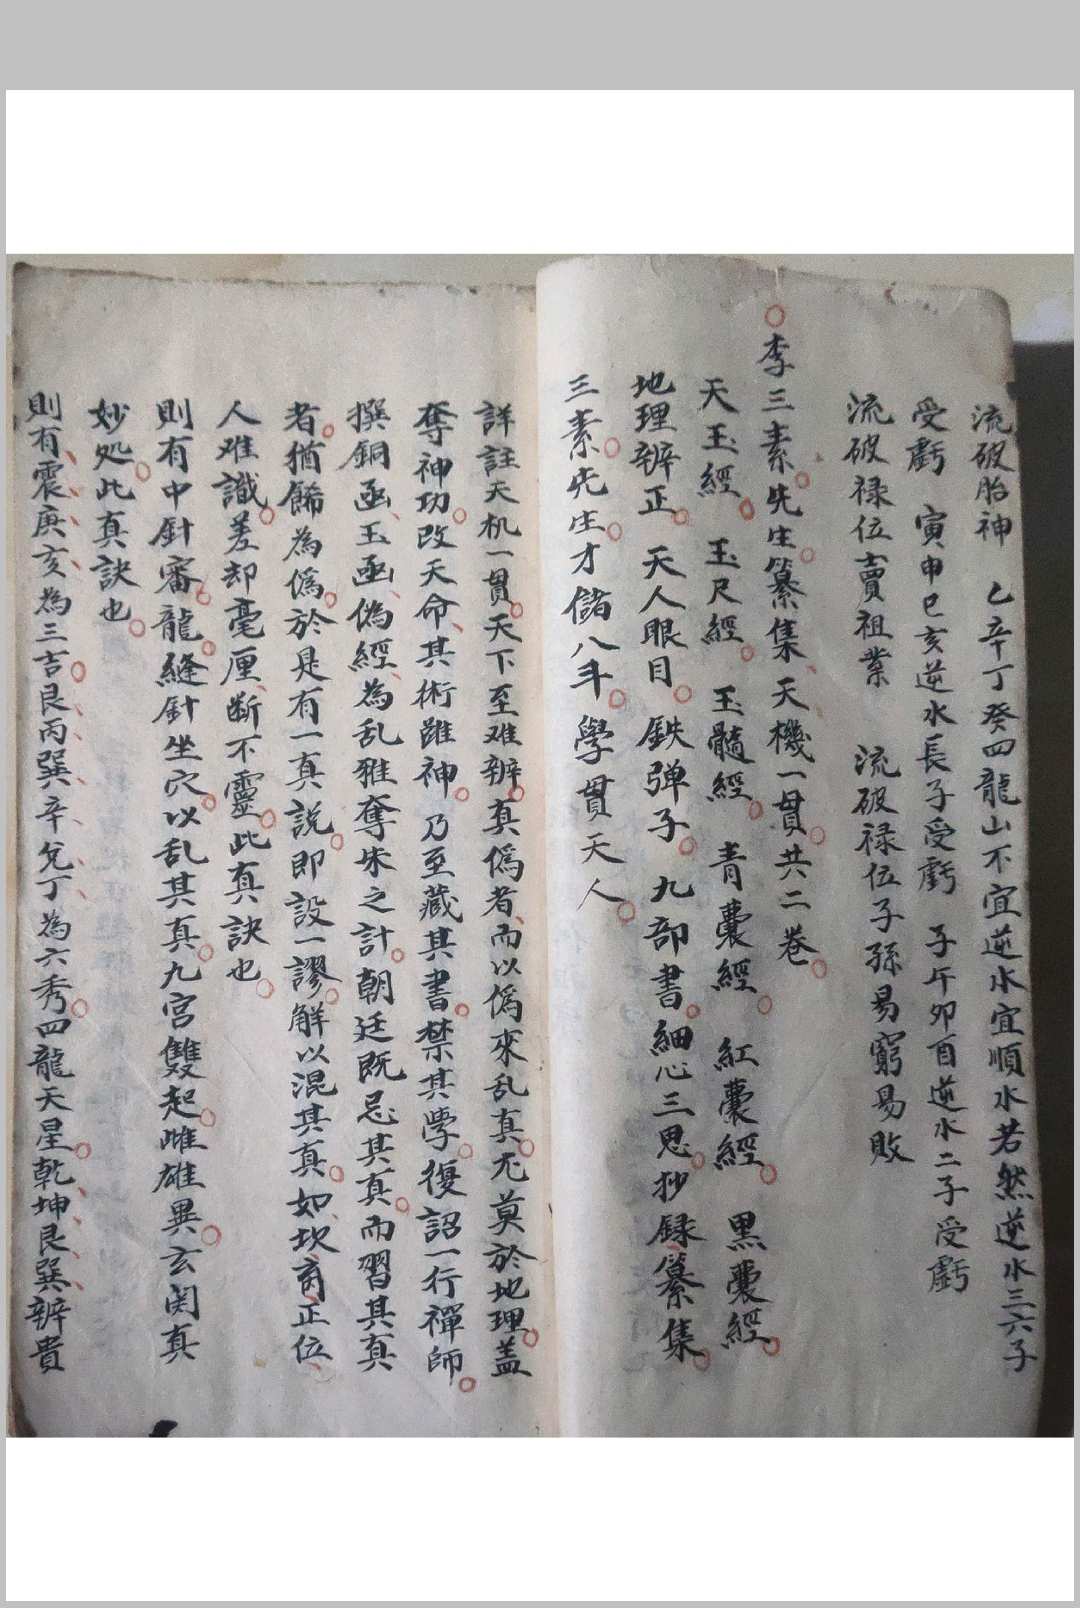 流破胎神　乙辛丁癸四龍山不宜逆水宜順水若然逆水三六子
受虧　寅申巳亥逆水長子受虧　子午卯酉逆水二子受虧
流破祿位賣祖業　流破祿位子孫易窮易敗
李三素先生纂集天機一貫共二巻
天玉經　玉尺經　玉髓經　青囊經　紅囊經　黑囊經
地理辨正　天人眼目　鉄弹子　九部書細心三思抄録纂集
三素先生才儲八斗學貫天人
詳註天机一貫天下至难辨真偽者而以偽來乱真尤莫於地理盖
奪神功改天命其術雖神乃至藏其書禁其學復詔一行禪師
撰銅函玉函偽經為乱雅奪朱之計朝廷既忌其真而習其真
者猶餙為偽於是有一真說即設一謬解以混其真如坎离正位
人难識差却毫厘断不靈此真訣也
則有中針審龍縫針坐穴以乱其真九宮雙起雌雄異玄関真
妙処此真訣也
則有震庚亥為三吉艮丙巽辛兌丁為六秀四龍天星乾坤艮巽辨貴